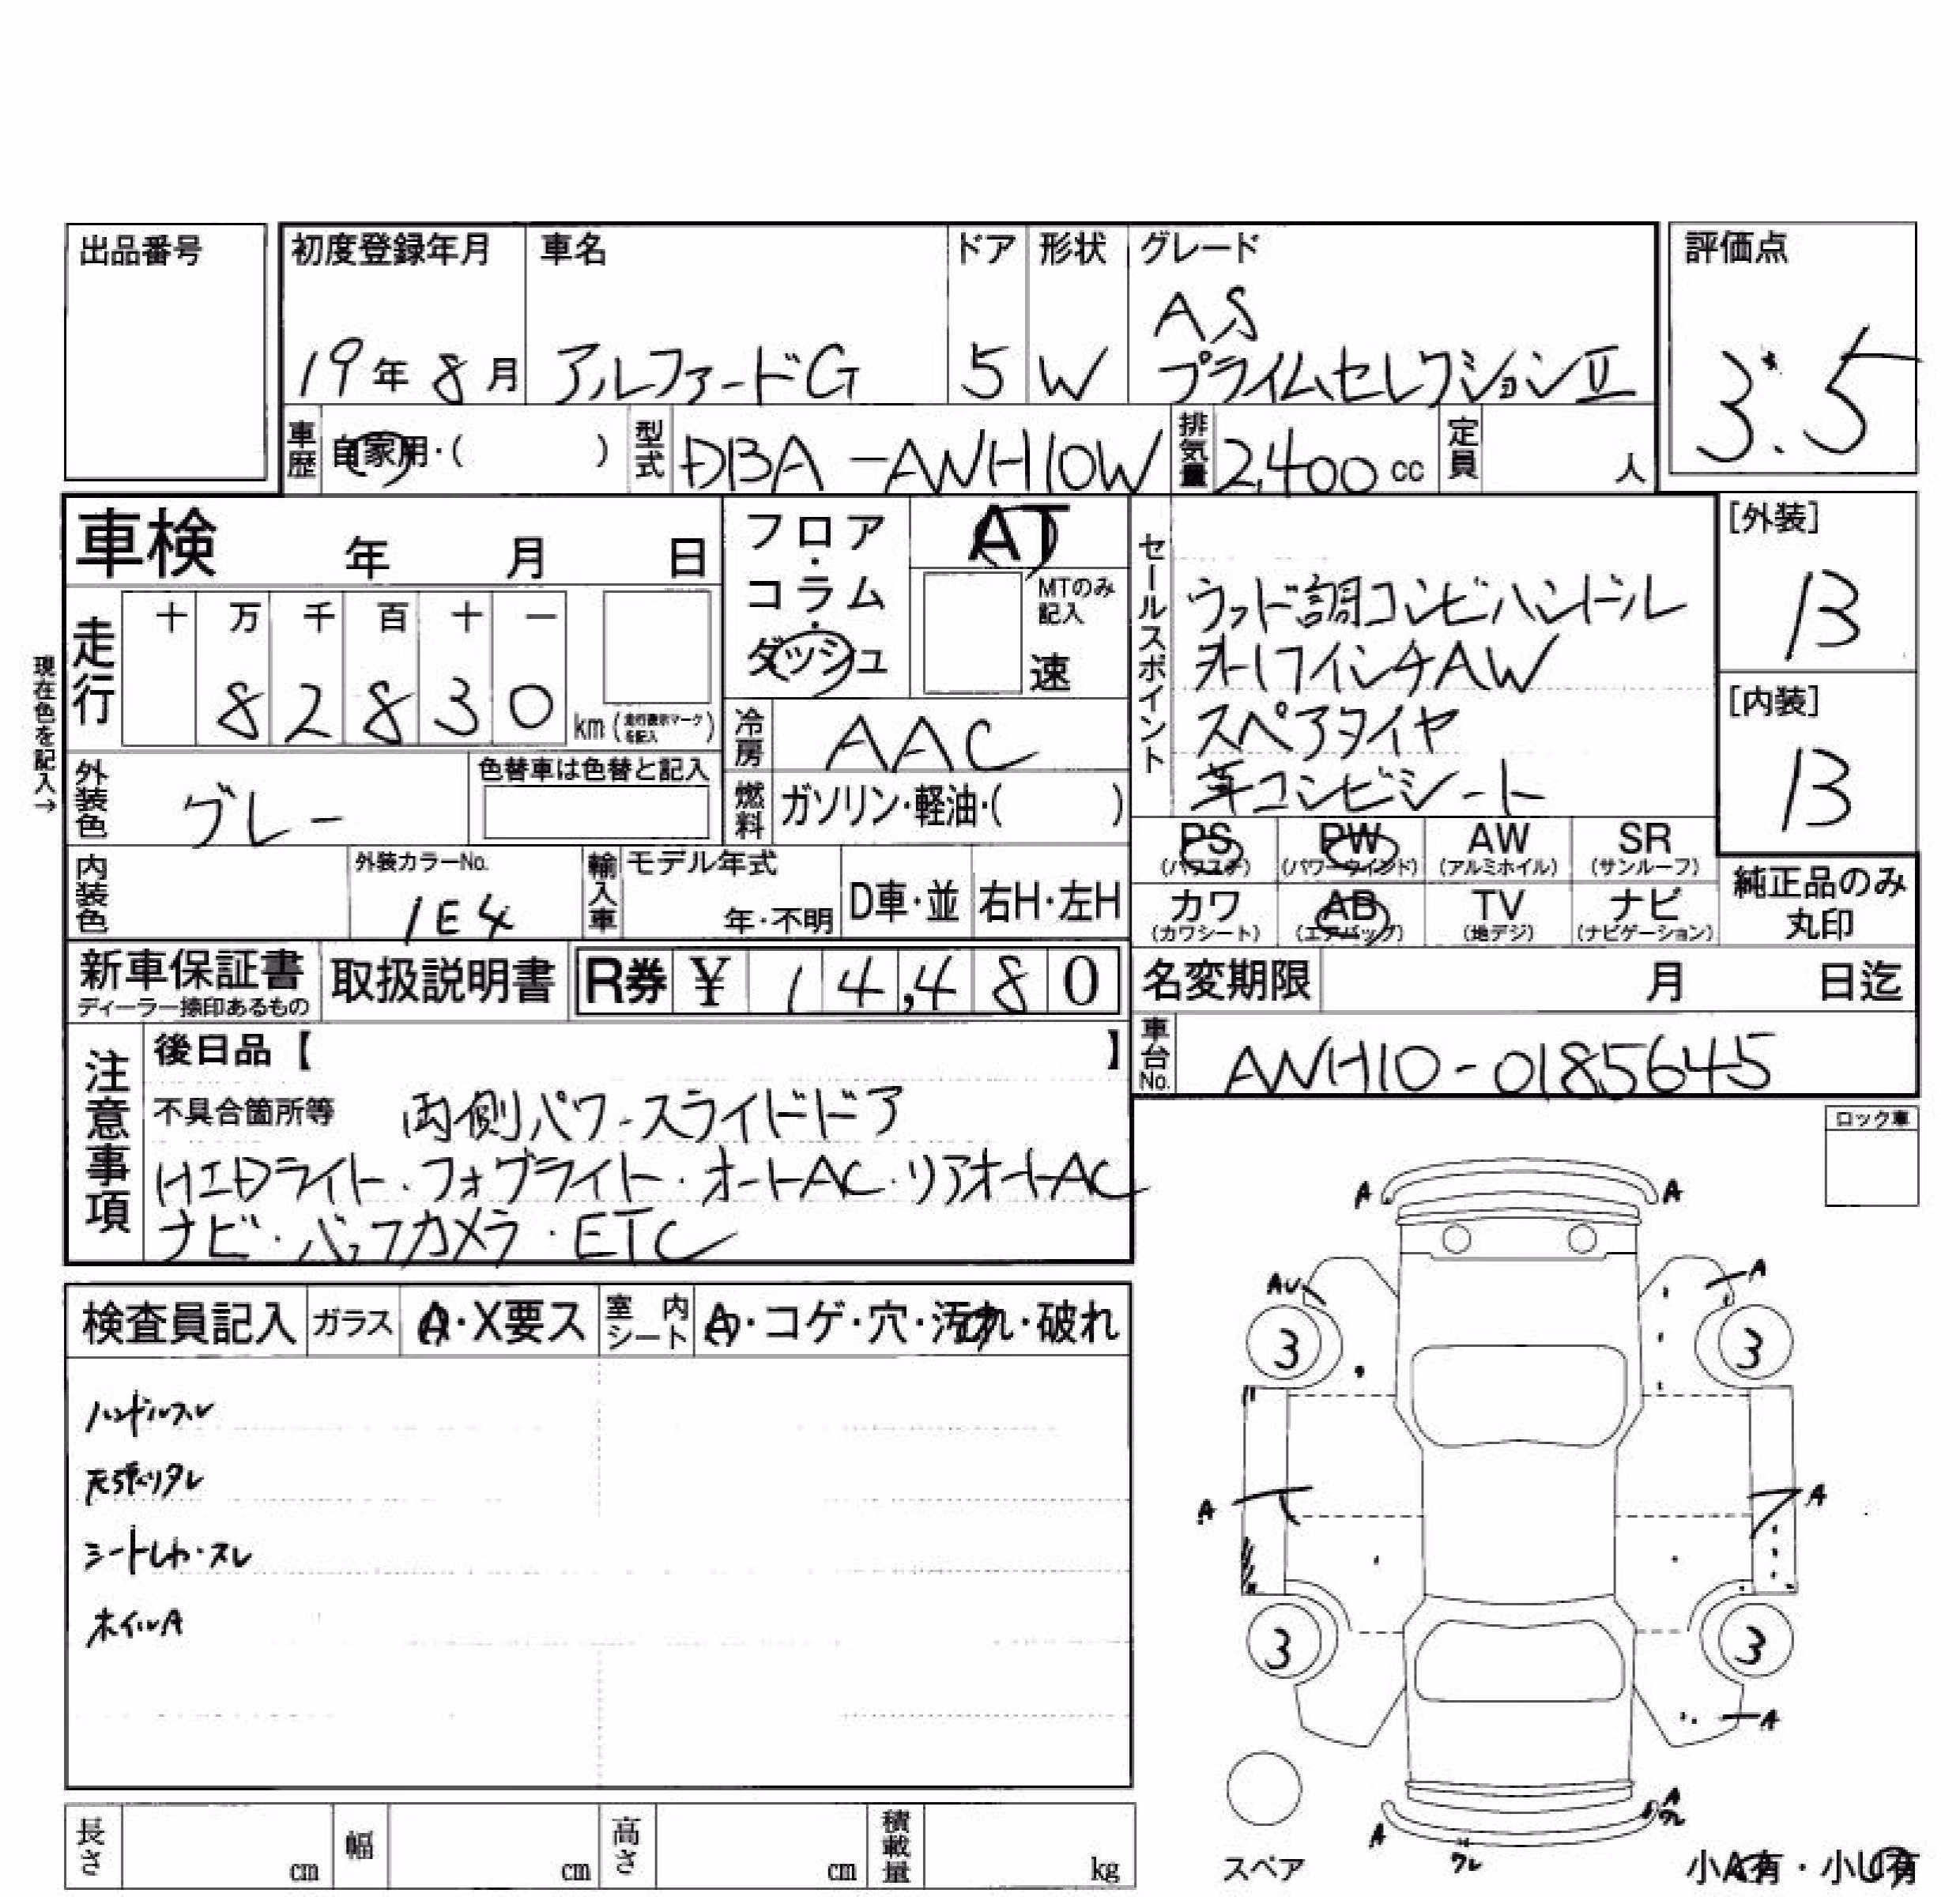 出品番号
初度登録年月 車名 ドア 形状 グレード
評価点
AS
19年 8月 アルファードG 5 W プライムセレクションⅡ
3.5
車歴 自家用・( ) 型式 DBA-ANH10W 排気量 2,400 cc 定員 人
車検 年 月 日
フロア・コラム・ダッシュ
AT
MTのみ記入
速
走行 十 万 千 百 十 一
8 2 8 3 0 km (走行表示マークを記入)
現在色を記入→
冷房 AAC
外装色 グレー 色替車は色替と記入
燃料 ガソリン・軽油・( )
内装色
外装カラーNo.
1E4
輸入車 モデル年式
年・不明 D車・並 右H・左H
セールスポイント
ウッド調コンビハンドル
外17インチAW
スペアタイヤ
革コンビシート
[外装]
B
[内装]
B
PS (パワステ) PW (パワーウインド) AW (アルミホイル) SR (サンルーフ)
カワ (カワシート) AB (エアバッグ) TV (地デジ) ナビ (ナビゲーション)
純正品のみ丸印
新車保証書
ディーラー捺印あるもの
取扱説明書 R券 ¥ 14,480
名変期限 月 日迄
車台No. ANH10-0185645
注意事項
後日品【 】
不具合箇所等 両側パワースライドドア
HIDライト・フォグライト・オートAC・リアオートAC
ナビ・バックカメラ・ETC
検査員記入 ガラス A・X要ス 室内シート A・コゲ・穴・汚れ・破れ
ハンドルスレ
天張りタレ
シートしわ・スレ
ホイルA
ロック車
A A
AU A
3 3
A A
3 3
A
A
ワレ
A
ワレ
スペア
小A有・小U有
長さ cm 幅 cm 高さ cm 積載量 kg